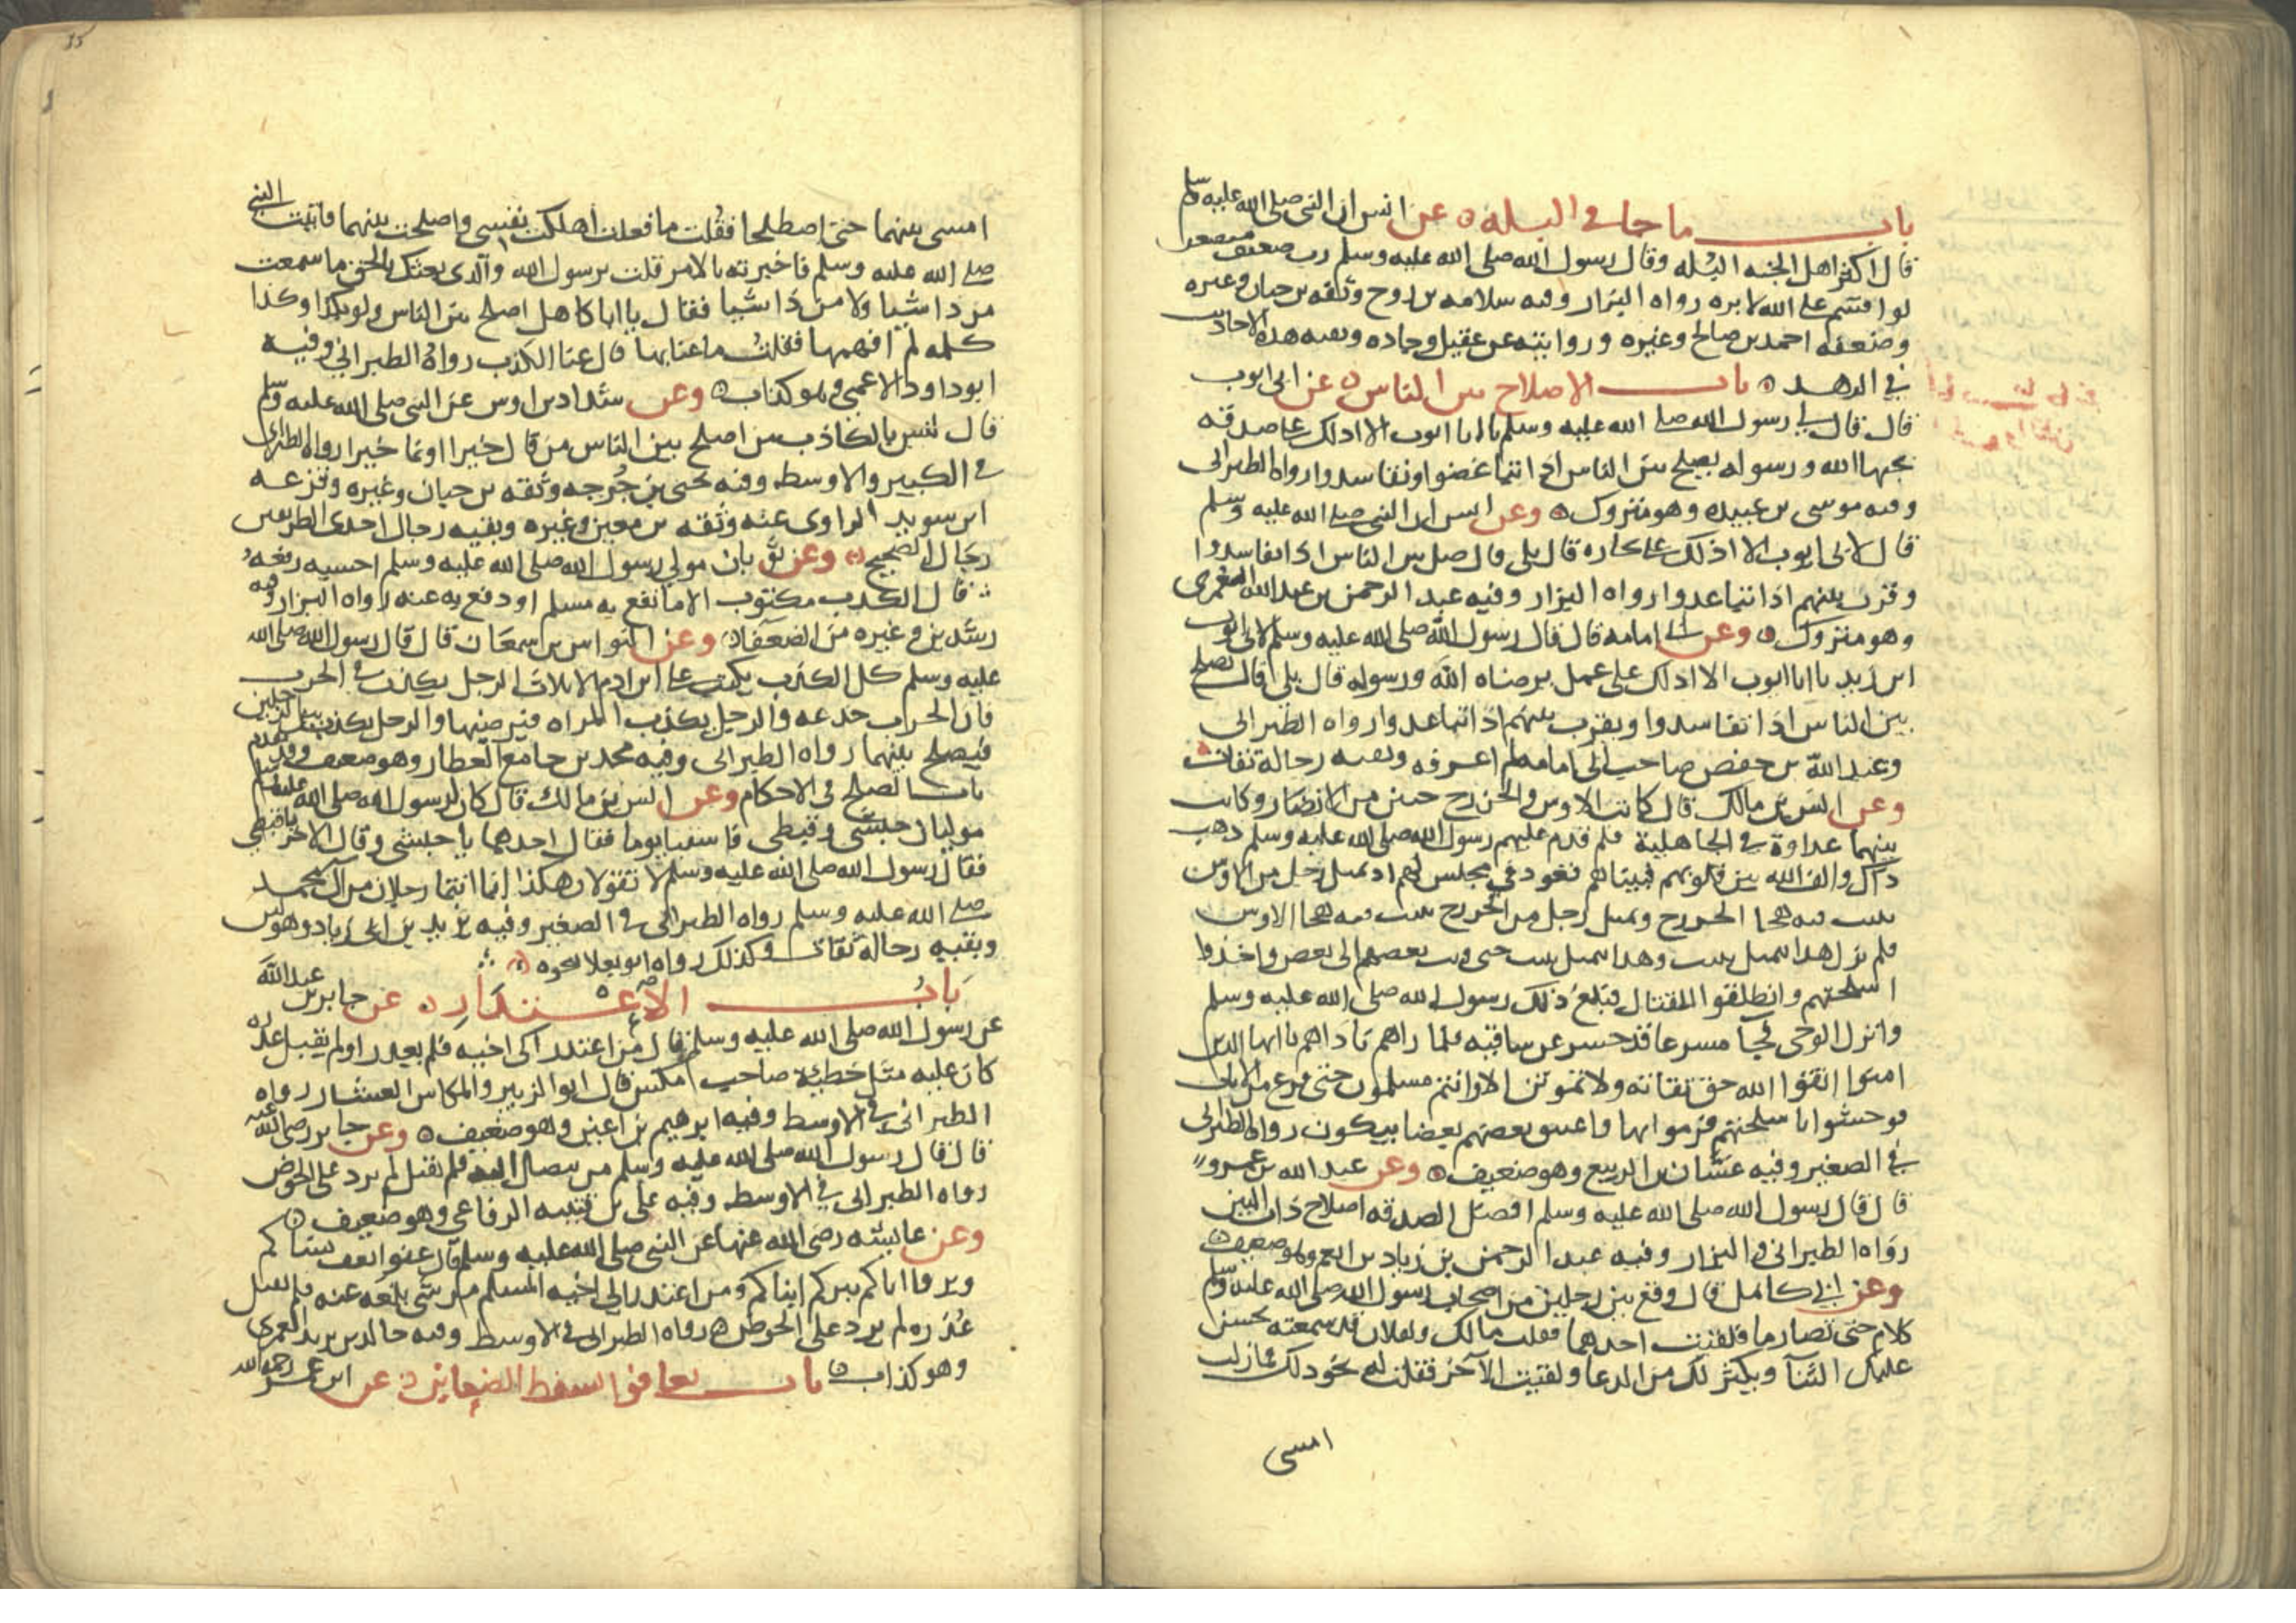 باب ما جا في البله عن انس ان النبي صلى الله عليه وسلم
قال اكثر اهل الجنه البله وقال رسول الله صلى الله عليه وسلم رب ضعيف متضعف
لو اقسم على الله لابره رواه البزار وفيه سلامه بن روح وثقه بن حبان وغيره
وضعفه احمد بن صالح وغيره وروايته عن عقيل وجاده وبقيه هذه الاحاديث
في الزهد باب الاصلاح بين الناس عن ابي ايوب
قال قال لي رسول الله صلى الله عليه وسلم يا ابا ايوب الا ادلك على صدقه
يحبها الله ورسوله يصلح بين الناس اذا تباغضوا وتفاسدوا رواه الطبراني
وفيه موسى بن عبيده وهو متروك وعن انس ان النبي صلى الله عليه وسلم
قال لابي ايوب الا ادلك على تجاره قال بلى قال صل بين الناس اذا تفاسدوا
وقرب بينهم اذا تباعدوا رواه البزار وفيه عبد الرحمن بن عبد الله العمري
وهو متروك وعن ابي امامه قال قال رسول الله صلى الله عليه وسلم لابي ايوب
ابن زيد يا ابا ايوب الا ادلك على عمل يرضاه الله ورسوله قال بلى قال تصلح
بين الناس اذا تفاسدوا ويقرب بينهم اذا تباعدوا رواه الطبراني
وعبد الله بن حفص صاحب ابي امامه لم اعرفه وبقيه رجاله ثقات
وعن انس بن مالك قال كانت الاوس والخزرج حيين من الانصار وكانت
بينهما عداوة في الجاهلية فلم قدم عليهم رسول الله صلى الله عليه وسلم ذهب
ذلك والف الله بين قلوبهم فبيناهم قعود في مجلس لهم اذ تمثل رجل من الاوس
ببيت فيه هجا الخزرج وتمثل رجل من الخزرج ببيت فيه هجا الاوس
فلم يزل هذا يتمثل ببيت وهذا يتمثل ببيت حتى وثب بعضهم الى بعض واخذوا
اسلحتهم وانطلقوا للقتال فبلغ ذلك رسول الله صلى الله عليه وسلم
وانزل الوحي فجا مسرعا قد حسر عن ساقيه فلما راهم ناداهم يا ايها الذين
امنوا اتقوا الله حق تقاته ولا تموتن الا وانتم مسلمون حتى فرغ من الايات
فوحشوا باسلحتهم فرموا بها واعتنق بعضهم بعضا يبكون رواه الطبراني
في الصغير وفيه غسان بن الربيع وهو ضعيف وعن عبد الله بن عمرو
قال قال رسول الله صلى الله عليه وسلم افضل الصدقه اصلاح ذات البين
رواه الطبراني والبزار وفيه عبد الرحمن بن زياد بن انعم وهو ضعيف
وعن ابي كاهل قال وقع بين رجلين من اصحاب رسول الله صلى الله عليه وسلم
كلام حتى تصارما فلقيت احدهما فقلت مالك ولفلان قد سمعته يحسن
عليك الثنا ويكثر لك من الدعا ولقيت الآخر فقلت له نحو ذلك فما زلت
امسى
امسى بينهما حتى اصطلحا فقلت ما فعلت اهلكت نفسي واصلحت بينهما فاتيت النبي
صلى الله عليه وسلم فاخبرته بالامر قلت يرسول الله والذي بعثك بالحق ما سمعت
من ذا شيا ولا من ذا شيا فقال يا ابا كاهل اصلح بين الناس ولو بكذا وكذا
كلمه لم افهمها فقلت ما عنا بها قال عنا الكذب رواه الطبراني وفيه
ابو داود الاعمى وهو كذاب وعن شداد بن اوس عن النبي صلى الله عليه وسلم
قال ليس بالكاذب من اصلح بين الناس من قال خيرا او نما خيرا رواه الطبراني
في الكبير والاوسط وفيه يحيى بن جرجه وثقه بن حبان وغيره وقزعه
ابن سويد الراوي عنه وثقه بن معين وغيره وبقيه رجال احدى الطريقين
رجال الصحيح وعن ثوبان مولى رسول الله صلى الله عليه وسلم احسبه رفعه
قال الكذب مكتوب الا ما نفع به مسلم او دفع به عنه رواه البزار وفيه
رشدين وغيره من الضعفاء وعن النواس بن سمعان قال قال رسول الله صلى الله
عليه وسلم كل الكذب يكتب على ابن ادم الا ثلاث الرجل يكذب في الحرب
فان الحرب خدعه والرجل يكذب المراه فيرضيها والرجل يكذب بين الرجلين
فيصلح بينهما رواه الطبراني وفيه محمد بن جامع العطار وهو ضعيف وقد تقدم
باب الصلح في الاحكام وعن انس بن مالك قال كان لرسول الله صلى الله عليه وسلم
موليان حبشي وقبطي فاستبا يوما فقال احدهما يا حبشي وقال الاخر يا قبطي
فقال رسول الله صلى الله عليه وسلم لا تقولا هكذا انما انتما رجلان من آل محمد
صلى الله عليه وسلم رواه الطبراني في الصغير وفيه يزيد بن ابي زياد وهو لين
وبقيه رجاله ثقات وكذلك رواه ابو يعلا نحوه
باب الاعتذار عن جابر بن عبد الله
عن رسول الله صلى الله عليه وسلم قال من اعتذر الى اخيه فلم يعذر او لم يقبل عذره
كان عليه مثل خطيئة صاحب مكس قال ابو الزبير والمكاس العشار رواه
الطبراني في الاوسط وفيه ابرهيم بن اعين وهو ضعيف وعن جابر رضي الله عنه
قال قال رسول الله صلى الله عليه وسلم من تنصل اليه فلم يقبل لم يرد على الحوض
رواه الطبراني في الاوسط وفيه علي بن قتيبه الرفاعي وهو ضعيف
وعن عايشه رضي الله عنها عن النبي صلى الله عليه وسلم قال عفوا تعف نساكم
وبروا اباكم تبركم ابناكم ومن اعتذر الى اخيه المسلم من شي بلغه عنه فلم يقبل
عذره لم يرد على الحوض رواه الطبراني في الاوسط وفيه خالد بن يزيد العمري
وهو كذاب باب تعافوا تسقط الضغاين عن ابن عمر رحمه الله